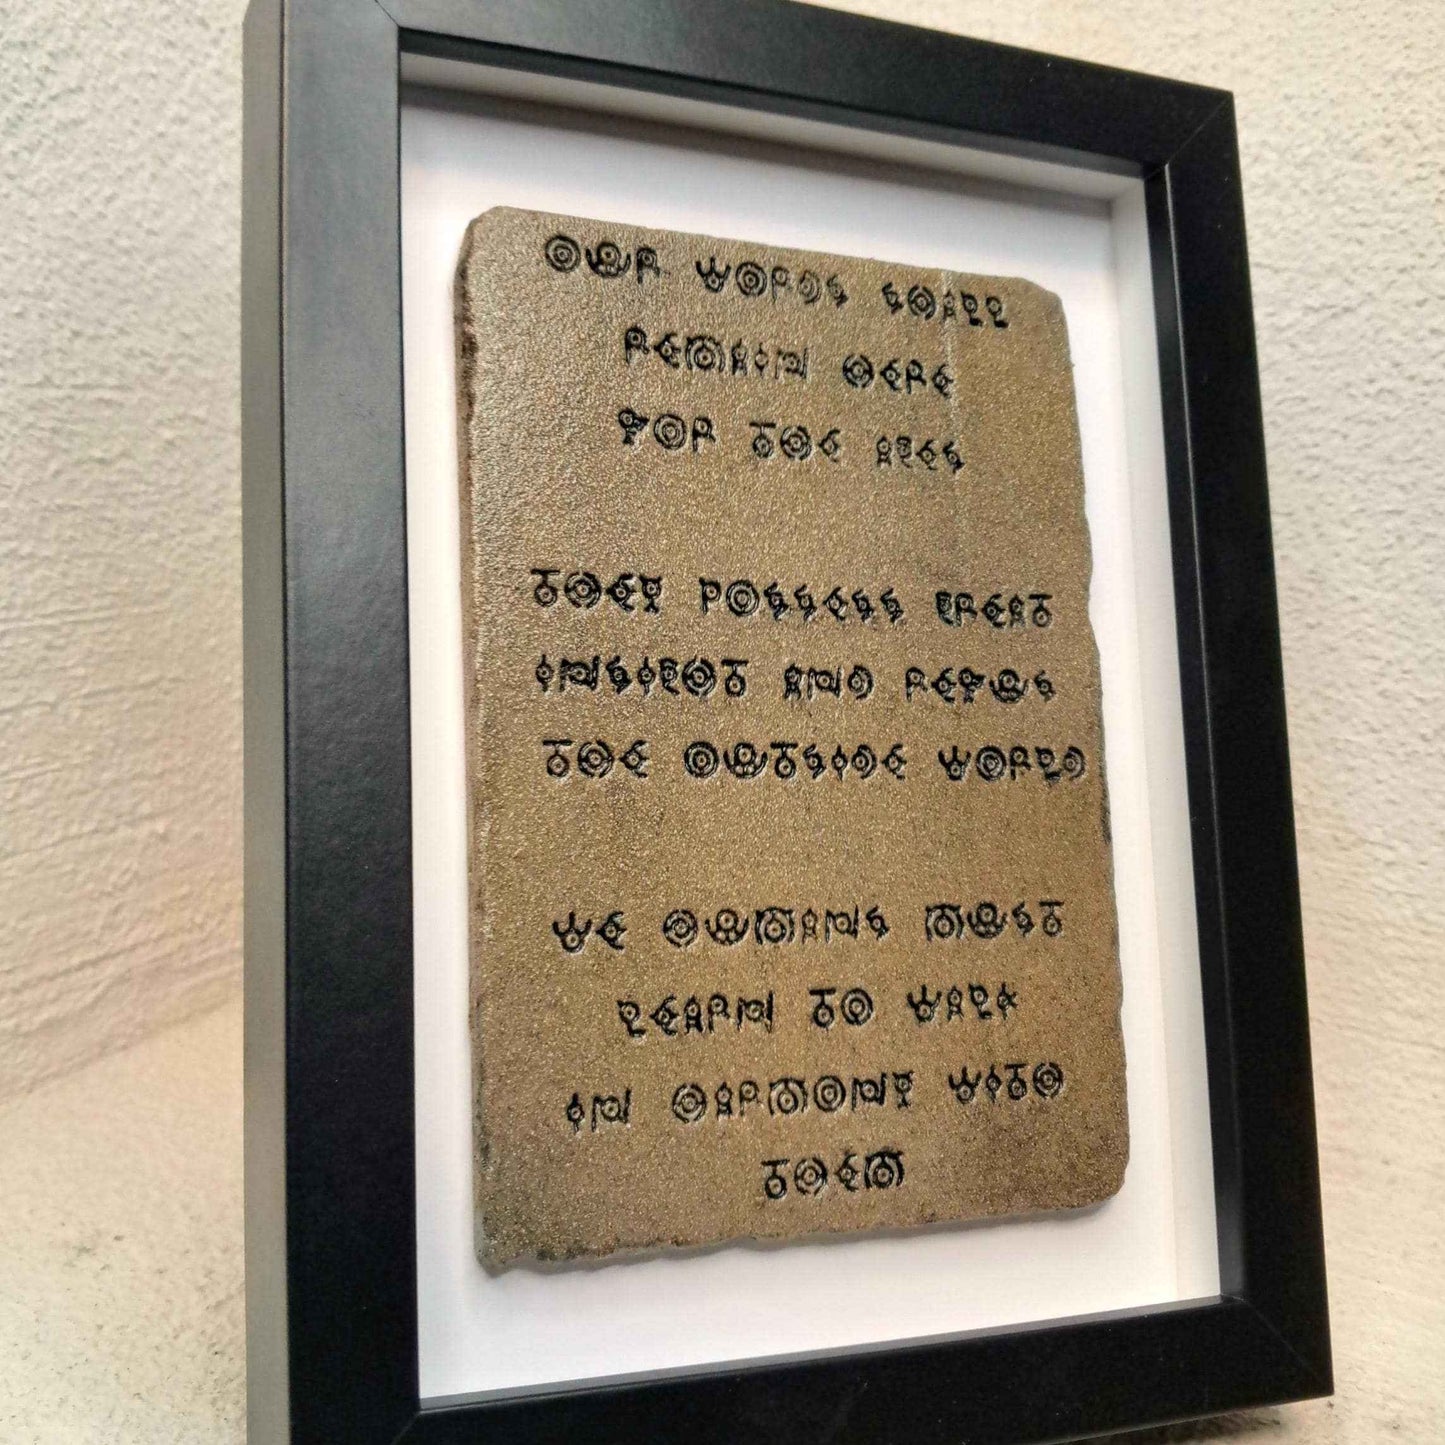 OUR WORDS SHALL
REMAIN HERE
FOR THE AGES
THEY POSSESS GREAT
INSIGHT AND REFUSE
THE OUTSIDE WORLD
WE HUMANS MUST
LEARN TO WALK
IN HARMONY WITH
THEM